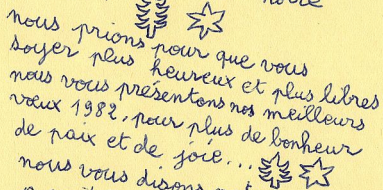 nous prions pour que vous
soyer plus heureux et plus libres
nous vous présentons nos meilleurs
vœux 1982, pour plus de bonheur
de paix et de joie...
nous vous disons